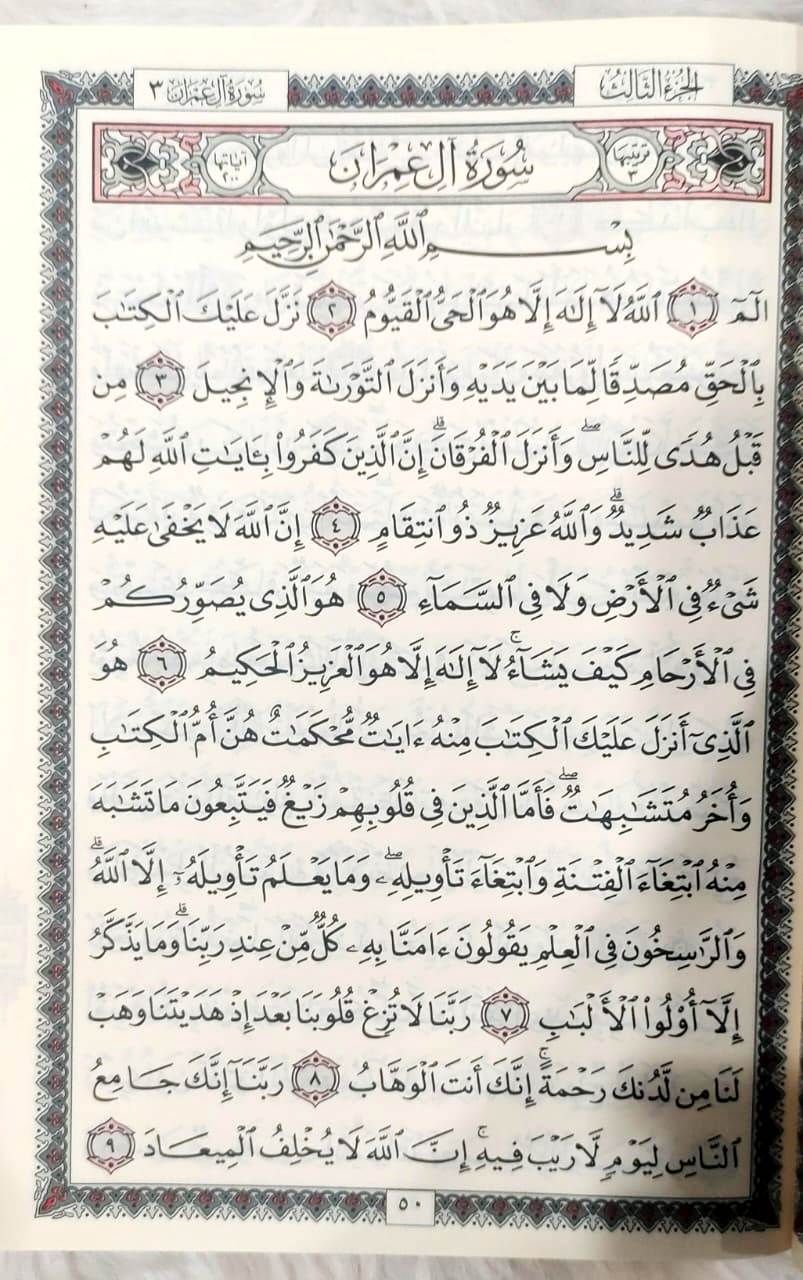 الجزء الثالث
سورة آل عمران ٣
ترتيبها ٣
سُورَةُ آلِ عِمْرَانَ
آياتها ٢٠٠
بِسْمِ ٱللَّهِ ٱلرَّحْمَٰنِ ٱلرَّحِيمِ
الٓمٓ ١ ٱللَّهُ لَآ إِلَٰهَ إِلَّا هُوَ ٱلْحَىُّ ٱلْقَيُّومُ ٢ نَزَّلَ عَلَيْكَ ٱلْكِتَٰبَ
بِٱلْحَقِّ مُصَدِّقًا لِّمَا بَيْنَ يَدَيْهِ وَأَنزَلَ ٱلتَّوْرَىٰةَ وَٱلْإِنجِيلَ ٣ مِن
قَبْلُ هُدًى لِّلنَّاسِ ۖ وَأَنزَلَ ٱلْفُرْقَانَ ۗ إِنَّ ٱلَّذِينَ كَفَرُوا۟ بِـَٔايَٰتِ ٱللَّهِ لَهُمْ
عَذَابٌ شَدِيدٌ ۗ وَٱللَّهُ عَزِيزٌ ذُو ٱنتِقَامٍ ٤ إِنَّ ٱللَّهَ لَا يَخْفَىٰ عَلَيْهِ
شَىْءٌ فِى ٱلْأَرْضِ وَلَا فِى ٱلسَّمَآءِ ٥ هُوَ ٱلَّذِى يُصَوِّرُكُمْ
فِى ٱلْأَرْحَامِ كَيْفَ يَشَآءُ ۚ لَآ إِلَٰهَ إِلَّا هُوَ ٱلْعَزِيزُ ٱلْحَكِيمُ ٦ هُوَ
ٱلَّذِىٓ أَنزَلَ عَلَيْكَ ٱلْكِتَٰبَ مِنْهُ ءَايَٰتٌ مُّحْكَمَٰتٌ هُنَّ أُمُّ ٱلْكِتَٰبِ
وَأُخَرُ مُتَشَٰبِهَٰتٌ ۖ فَأَمَّا ٱلَّذِينَ فِى قُلُوبِهِمْ زَيْغٌ فَيَتَّبِعُونَ مَا تَشَٰبَهَ
مِنْهُ ٱبْتِغَآءَ ٱلْفِتْنَةِ وَٱبْتِغَآءَ تَأْوِيلِهِۦ ۖ وَمَا يَعْلَمُ تَأْوِيلَهُۥٓ إِلَّا ٱللَّهُ ۗ
وَٱلرَّٰسِخُونَ فِى ٱلْعِلْمِ يَقُولُونَ ءَامَنَّا بِهِۦ كُلٌّ مِّنْ عِندِ رَبِّنَا ۗ وَمَا يَذَّكَّرُ
إِلَّآ أُو۟لُوا۟ ٱلْأَلْبَٰبِ ٧ رَبَّنَا لَا تُزِغْ قُلُوبَنَا بَعْدَ إِذْ هَدَيْتَنَا وَهَبْ
لَنَا مِن لَّدُنكَ رَحْمَةً ۚ إِنَّكَ أَنتَ ٱلْوَهَّابُ ٨ رَبَّنَآ إِنَّكَ جَامِعُ
ٱلنَّاسِ لِيَوْمٍ لَّا رَيْبَ فِيهِ ۚ إِنَّ ٱللَّهَ لَا يُخْلِفُ ٱلْمِيعَادَ ٩
٥٠